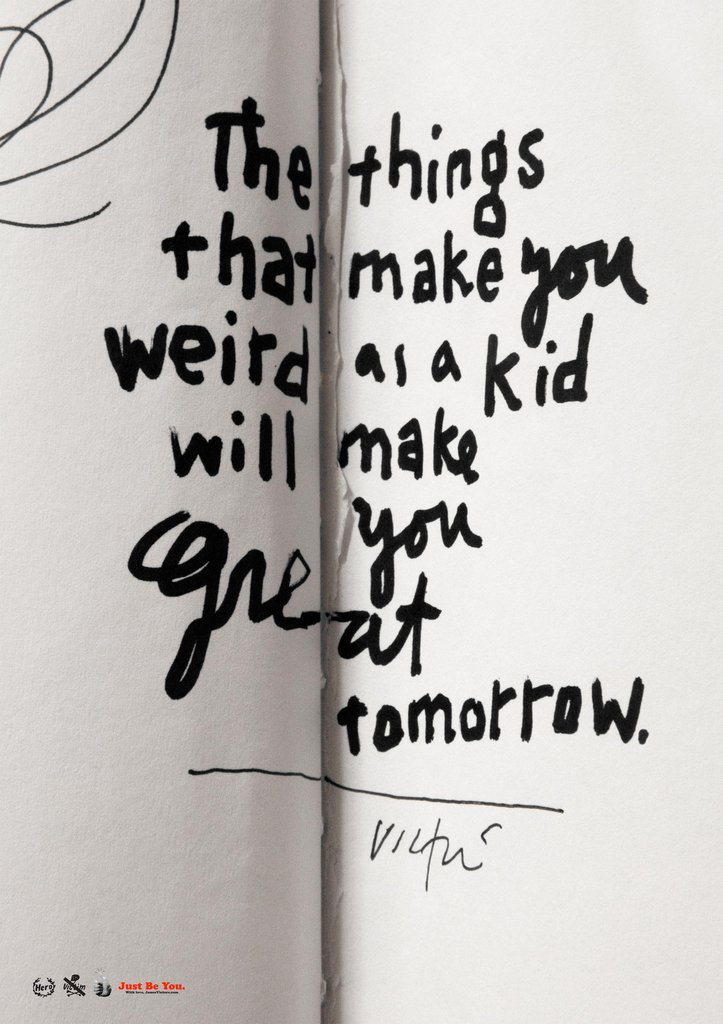 The things
that make you
weird as a kid
will make
you
great
tomorrow.
Hero
Victim
Just Be You.
With love, JamesVictore.com